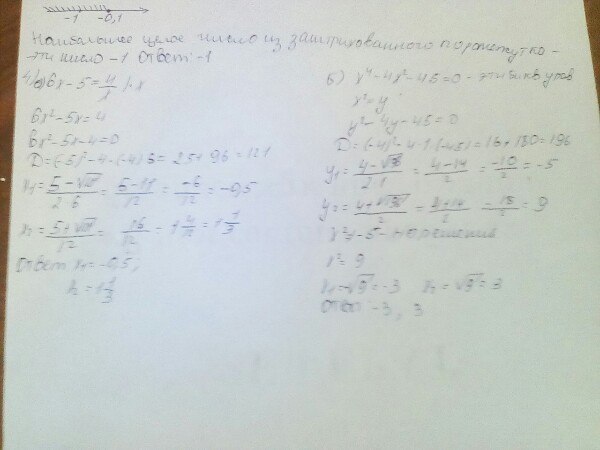 -1 -0,1
Наибольшее целое число из заштрихованного промежутка -
это число -1 Ответ: -1
6x - 5 = 4/x | · x
6x² - 5x = 4
6x² - 5x - 4 = 0
D = (-5)² - 4 · (-4) · 6 = 25 + 96 = 121
x₁ = (5 - √121)/(2·6) = (5 - 11)/12 = -6/12 = -0,5
x₂ = (5 + √121)/12 = 16/12 = 1 4/12 = 1 1/3
Ответ x₁ = -0,5;
x₂ = 1 1/3
б) x⁴ - 4x² - 45 = 0 -
x² = y
y² - 4y - 45 = 0
D = (-4)² - 4 · 1 · (-45) = 16 + 180 = 196
y₁ = (4 - √196)/(2·1) = (4 - 14)/2 = -10/2 = -5
y₂ = (4 + √196)/2 = (4 + 14)/2 = 18/2 = 9
x² = -5 - нет решения
x² = 9
x₁ = √9 = -3 x₂ = √9 = 3
Ответ -3, 3